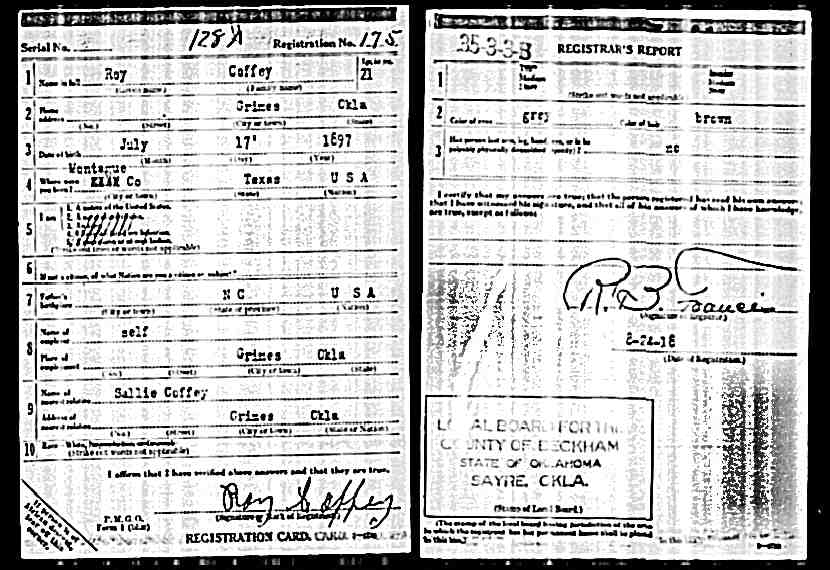 Serial No. 128 A Registration No. 175
1 Name in full Roy Coffey Age in yrs. 21
(Given name) (Family name)
2 Home address Grimes Okla
(No.) (Street) (City or town) (State)
3 Date of birth July 17' 1897
(Month) (Day) (Year)
Montague
4 Where were you born? Co Texas U S A
(City or town) (State) (Nation)
5 I am
1. A native of the United States.
(Strike out lines or words not applicable)
6 If not a citizen, of what Nation are you a citizen or subject?
7 Father's birthplace N C U S A
(City or town) (State or province) (Nation)
8 Name of employer self
Place of employment Grimes Okla
(No.) (Street) (City or town) (State)
9 Name of nearest relative Sallie Coffey
Address of nearest relative Grimes Okla
(No.) (Street) (City or town) (State or Nation)
10 Race
(Strike out words not applicable)
I affirm that I have verified above answers and that they are true.
Roy Coffey
(Signature or mark of Registrant)
P. M. G. O.
Form 1
REGISTRATION CARD.
If person is of African descent, tear off this corner.
35-3-3-B REGISTRAR'S REPORT
1 Tall Medium Short Slender Medium Stout
(Strike out words not applicable)
2 Color of eyes grey Color of hair brown
3 Has person lost arm, leg, hand, eye, or is he palpably physically disqualified (specify)? no
I certify that my answers are true; that the person registered has read his own answers;
that I have witnessed his signature, and that all of his answers of which I have knowledge
are true, except as follows:
R. B.
(Signature of Registrar)
8-24-18
(Date of Registration)
LOCAL BOARD FOR THE
COUNTY OF BECKHAM
STATE OF OKLAHOMA
SAYRE, OKLA.
(Stamp of Local Board)
(The stamp of the local board having jurisdiction of the area
in which the registrant has his permanent home shall be placed
in this box.)